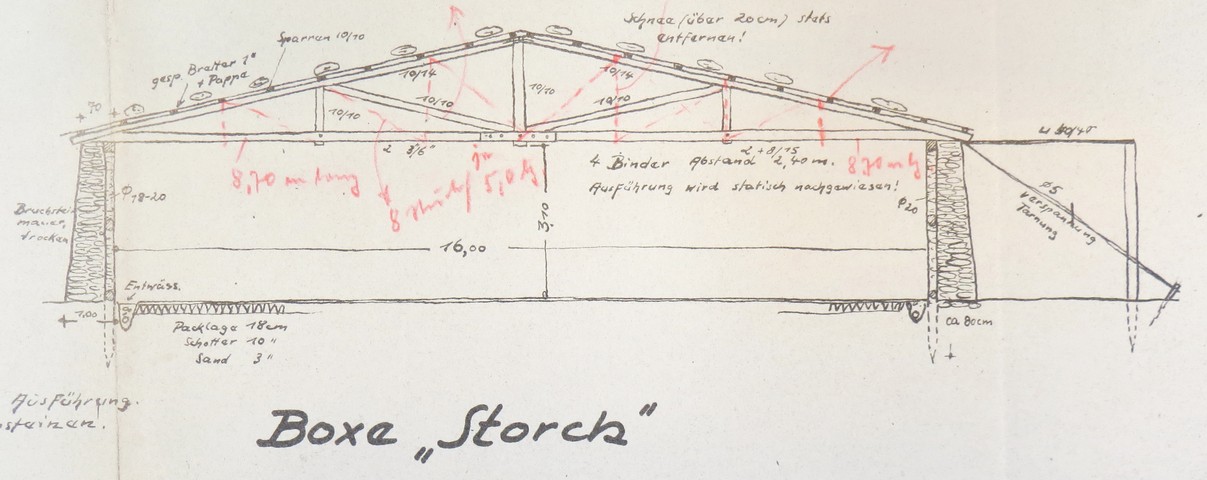 Schnee (über 20cm) stets
entfernen!
Sparren 10/10
gesp. Bretter 1"
+ Pappe
70
10/14
10/14
10/10
10/10
10/10
10/10
2 + 8/15
4 Binder Abstand 2,40 m.
Ausführung wird statisch nachgewiesen!
8,70 m lang
8 Stück
je
5,0
8,70 m lg
ø 18-20
ø 20
Bruchstein
mauer,
trocken
3,10
16,00
ø5
verspannung
Tarnung
Entwäss.
1,00
Packlage 18cm
Schotter 10 "
Sand 3 "
ca 80cm
Ausführung.
Boxe „Storch"